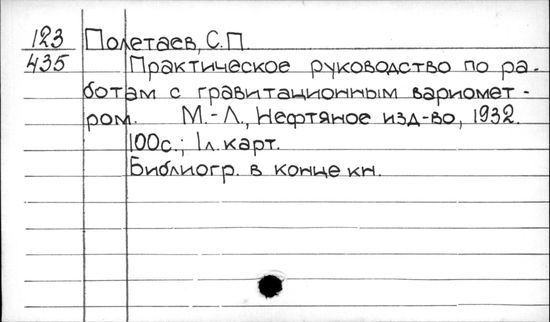 123 Полетаев, С.П.
435 Практическое руководство по ра-
ботам с гравитационным вариомет-
ром. М.-Л., Нефтяное изд-во, 1932.
100с.; 1л.карт.
Библиогр. в конце кн.